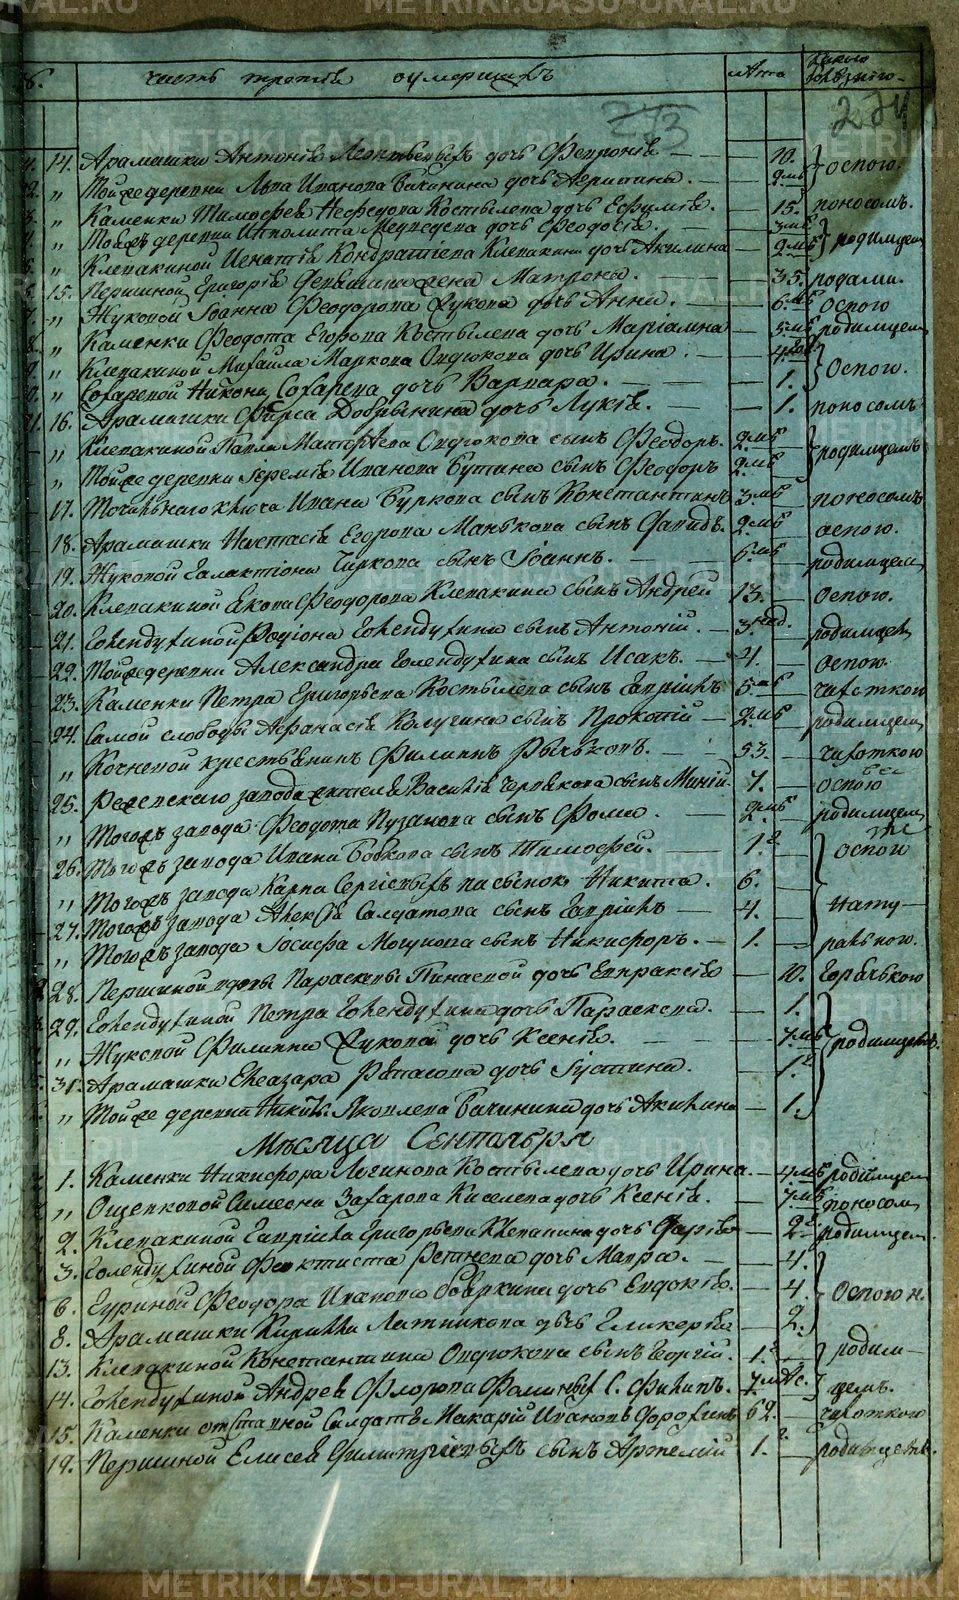 METRIKI.GASO-URAL.RU
часть третія оумершихъ Лѣта Какою болѣзнію
273 274
14. Арамашки Антонія дочь Февронія — 10. оспою.
„ Той же деревни Льва Иванова Бачинина дочь — 2 мѣс
„ Каменки Тимофея Нефедова Костылева дочь Евфимія. — 15. поносомъ.
„ Той жъ деревни Ипполита Медведева дочь Феодосія. — 3 мѣс родимцем
„ Клевакиной Игнатія Кондратіева Клевакина дочь Акилина — 2 мѣс
15. Першиной Григорія жена Матрона. — 35. родами.
„ Жуковой Іоанна Феодорова Жукова дочь Анна. — 6 мѣс оспою
„ Каменки Феодота Егорова Костылева дочь Маріамна — 5 мѣс родимцем
„ Клевакиной Михаила Маркова Ондрюкова дочь Ирина. — 4. Оспою.
„ Сохаревой Никона Сохарева дочь Варвара. — 1.
16. Арамашки Фирса Добрынина дочь Лукія. — 1. поносомъ
„ Клевакиной Павла Матфѣева Ондрюкова сынъ Феодоръ. 2 мѣс родимцемъ
„ Той же деревни Іеремія Иванова Бутина сынъ Феодоръ 2 мѣс
17. Точильнаго ключа Ивана Буркова сынъ Константинъ 3 мѣс поносомъ
18. Арамашки Настасія Егорова Манькова сынъ Давидъ. 2 мѣс оспою.
19. Жуковой Галактіона Чиркова сынъ Іоаннъ. — 6 мѣс родимцем
20. Клевакиной Якова Феодорова Клевакина сынъ Андрей 13. — оспою.
21. Голендухиной Родіона Голендухина сынъ Антоній. — 3 нед. родимцем
22. Той же деревни Александра Голендухина сынъ Исакъ. — 4. — оспою.
23. Каменки Петра Григорьева Костылева сынъ Гавріилъ — 5 мѣс чахоткою
24. Самой слободы Афанасія Калугина сынъ Прокопій — 2 мѣс родимцем
„ Кочневой крестьянинъ Филиппъ Рычковъ. — 53. чахоткою
25. Режевскаго завода жителя Василія Червякова сынъ Миній. 7. — оспою
„ Того жъ завода Феодота Пузанова сынъ Фома. — 2 мѣс родимцем
26. Того жъ завода Ивана Бобкова сынъ Тимофей. — 1. оспою
„ Того жъ завода Карпа Сергіевыхъ пасынокъ Никита. 6.
27. Того жъ завода Алексія Салдатова сынъ Гавріилъ — 4. Нату—
„ Того жъ завода Іосифа Мокроносова сынъ Никифоръ. — 1. ральною.
28. Першиной вдовы Параскевы Пинаевой дочь Евпраксія — 10. Горячкою
29. Голендухиной Петра Голендухина дочь Параскева. — 1. родимцемъ.
„ Жуковой Филиппа Жукова дочь Ксенія. — 7 мѣс
31. Арамашки Елеазара дочь Іустина. — 1
„ Той же деревни Никиты Яковлева Бачинина дочь Акилина — 1.
Мѣсяца Сентября
1. Каменки Никифора Логинова Костылева дочь Ирина. — 4 мѣс родимцем
„ Ощепковой Симеона Захарова Киселева дочь Ксенія. — 7 мѣс поносом
2. Клевакиной Гавріила Григорьева Клевакина дочь Дарія — 2. родимцем.
3. Голендухиной Феоктиста Ретнева дочь Мавра. — 4. Оспою.
6. Гуриной Феодора Иванова Бояркина дочь Евдокія. — 4.
8. Арамашки Кирилла Латникова дочь Гликерія — 2.
13. Клевакиной Константина Ондрюкова сынъ Георгій. — 1. родим—
14. Голендухиной Андрея Флорова Фоминых с. Филипъ. 7 мѣс. цемъ.
15. Каменки отставной Салдатъ Макарій Ивановъ Дорохинъ 62. чахоткою
19. Першиной Елисея Димитріевыхъ сынъ Артемій 1. — родимцемъ.